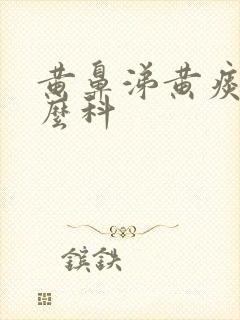 黄鼻涕黄痰
麼科
镔鉄